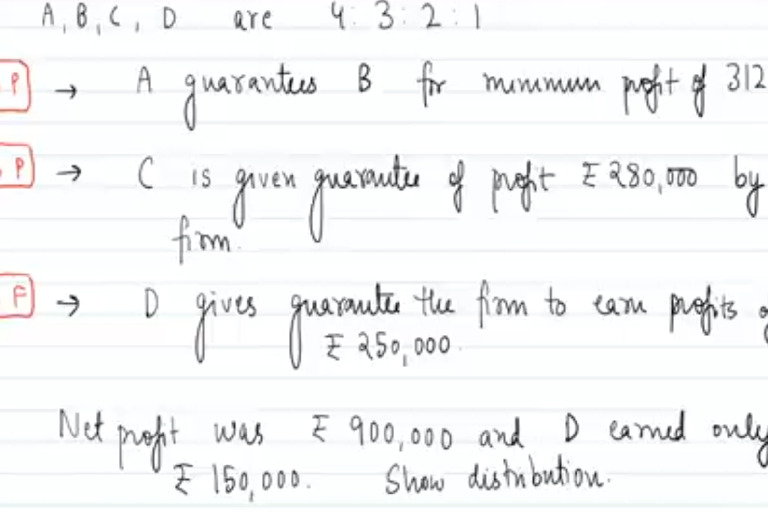 A, B, C, D are 4 : 3 : 2 : 1
P → A guarantees B for minimum profit of 312
P → C is given guarantee of profit ₹ 280,000 by
firm.
F → D gives guarantee the firm to earn profits
₹ 250,000.
Net profit was ₹ 900,000 and D earned only
₹ 150,000. Show distribution.